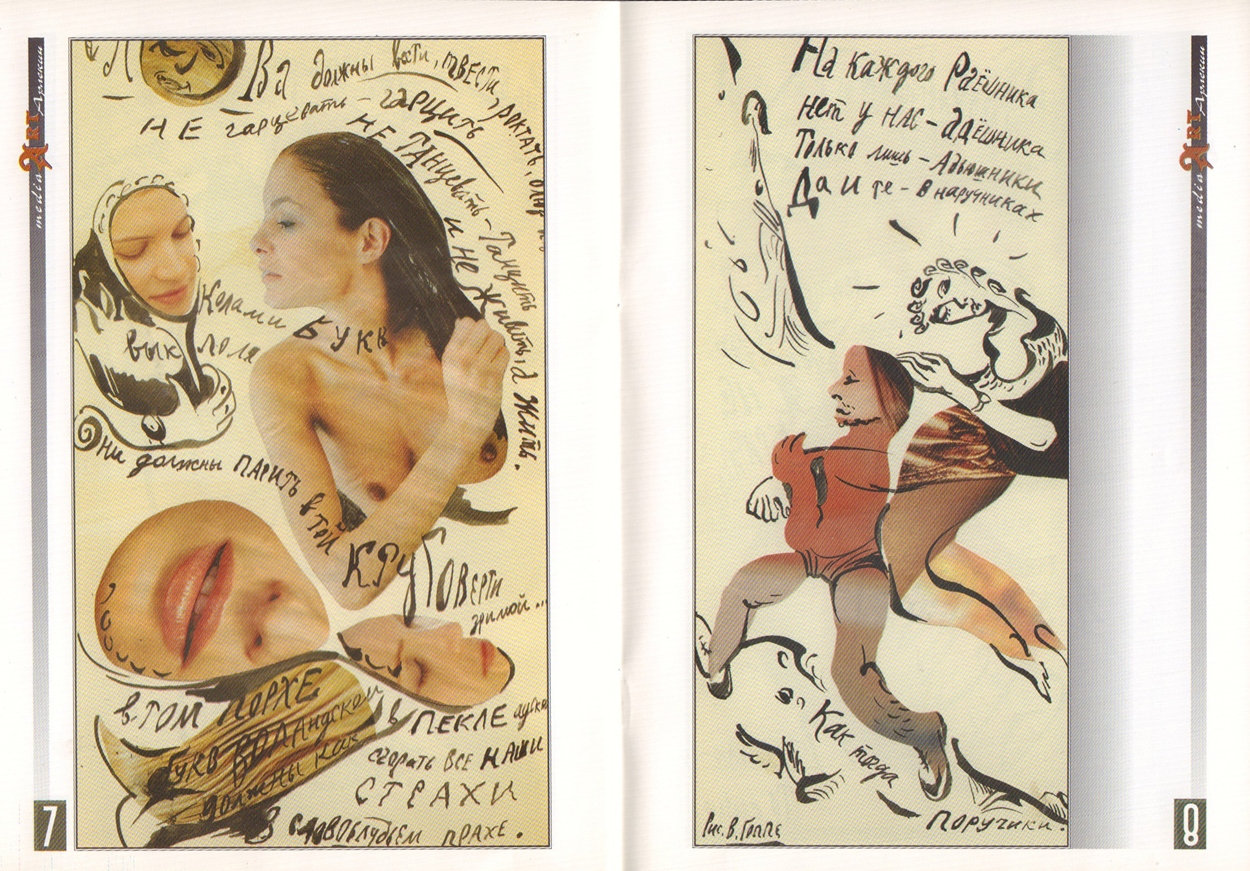 media ART Арлекин
Ва должны вести, твести,
НЕ гарцевать – гарцить
НЕ ТАНцевать – Танцить
и не живить, а жить.
Колами Букв
вык лоля
Они должны ПАРИТЬ в той
КРУГОверти
зримой...
в том ПОРХЕ
букв
должны как
в ПЕКЛЕ
сгорать все НАШИ
СТРАХИ
В словоблудьем прахе.
7
На каждого Раёшника
Нет у НАС – адёшника
Только лишь – Адьюшники
Да и те – в наручниках
Как тогда
поручики.
Рис. В. Гоппе
media ART Арлекин
8